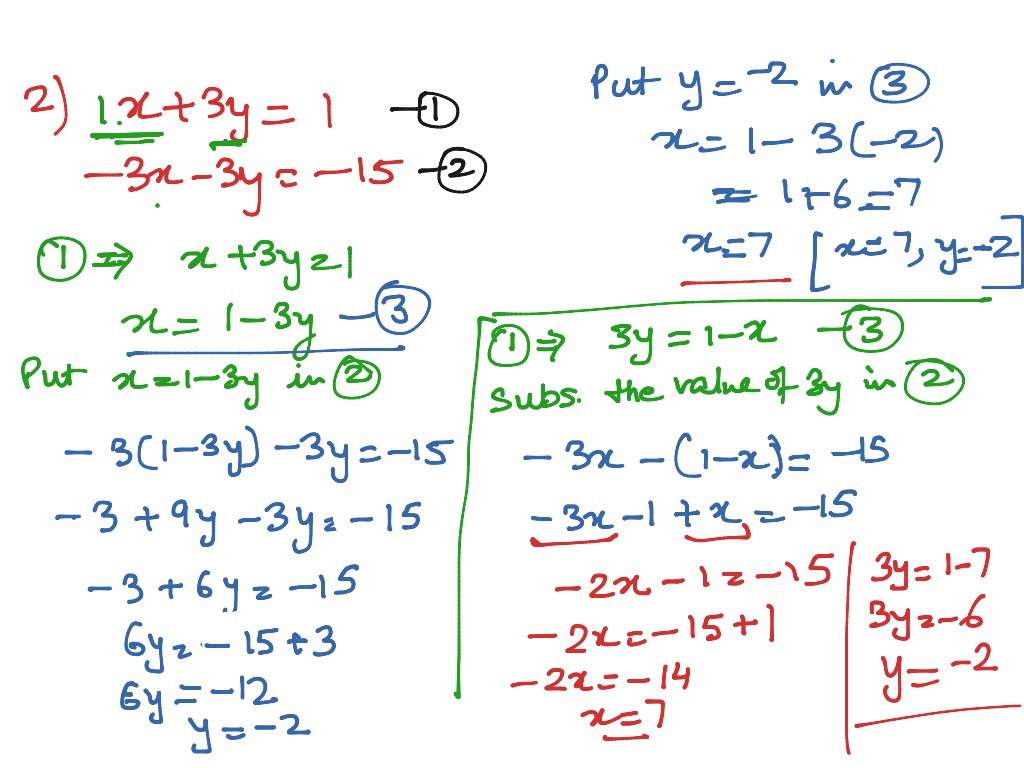 2) 1.x + 3y = 1 —①
-3x - 3y = -15 —②
① ⇒ x + 3y = 1
x = 1 - 3y —③
Put x = 1 - 3y in ②
- 3(1 - 3y) - 3y = -15
- 3 + 9y - 3y = -15
- 3 + 6y = -15
6y = -15 + 3
6y = -12
y = -2
Put y = -2 in ③
x = 1 - 3(-2)
= 1 + 6 = 7
x = 7 [x = 7, y = -2]
① ⇒ 3y = 1 - x —③
Subs. the value of 3y in ②
- 3x - (1 - x) = -15
- 3x - 1 + x = -15
- 2x - 1 = -15
- 2x = -15 + 1
- 2x = -14
x = 7
3y = 1 - 7
3y = -6
y = -2